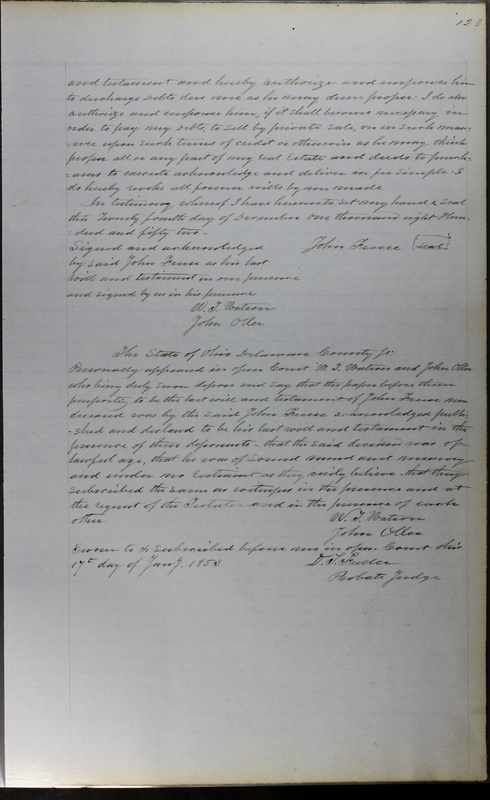 123
and testament and hereby authorize and empower him
to discharge debts due me as he may deem proper. I do also
authorize and empower him, if it shall become necessary in
order to pay my debts, to sell by private sale, or in such man-
-ner upon such terms of credit or otherwise as he may think
proper all or any part of my real Estate and deeds to purch-
-asers to execute acknowledge and deliver in fee simple. I
do hereby revoke all former wills by me made
In testimony whereof I have hereunto set my hand & seal
this Twenty fourth day of December one thousand eight hun-
-dred and fifty two-
Signed and acknowledged John (seal)
by said John as his last
will and testament in our presence
and signed by us in his presence
W. T. Watson
John Oller
The State of Ohio Delaware County Ss.
Personally appeared in open Court W. T. Watson and John Oller
who being duly sworn depose and say that the paper before them
purporting to be the last will and testament of John now
deceased was by the said John acknowledged publi-
-shed and declared to be his last will and testament in the
presence of these deponents - that the said deceased was of
lawful age, that he was of sound mind and memory
and under no restraint as they verily believe that they
subscribed the same as witnesses in the presence and at
the request of the Testator and in the presence of each
other
W. T. Watson
John Oller
Sworn to & subscribed before me in open Court this
17th day of Jany. 1853 D. T. Fuller
Probate Judge